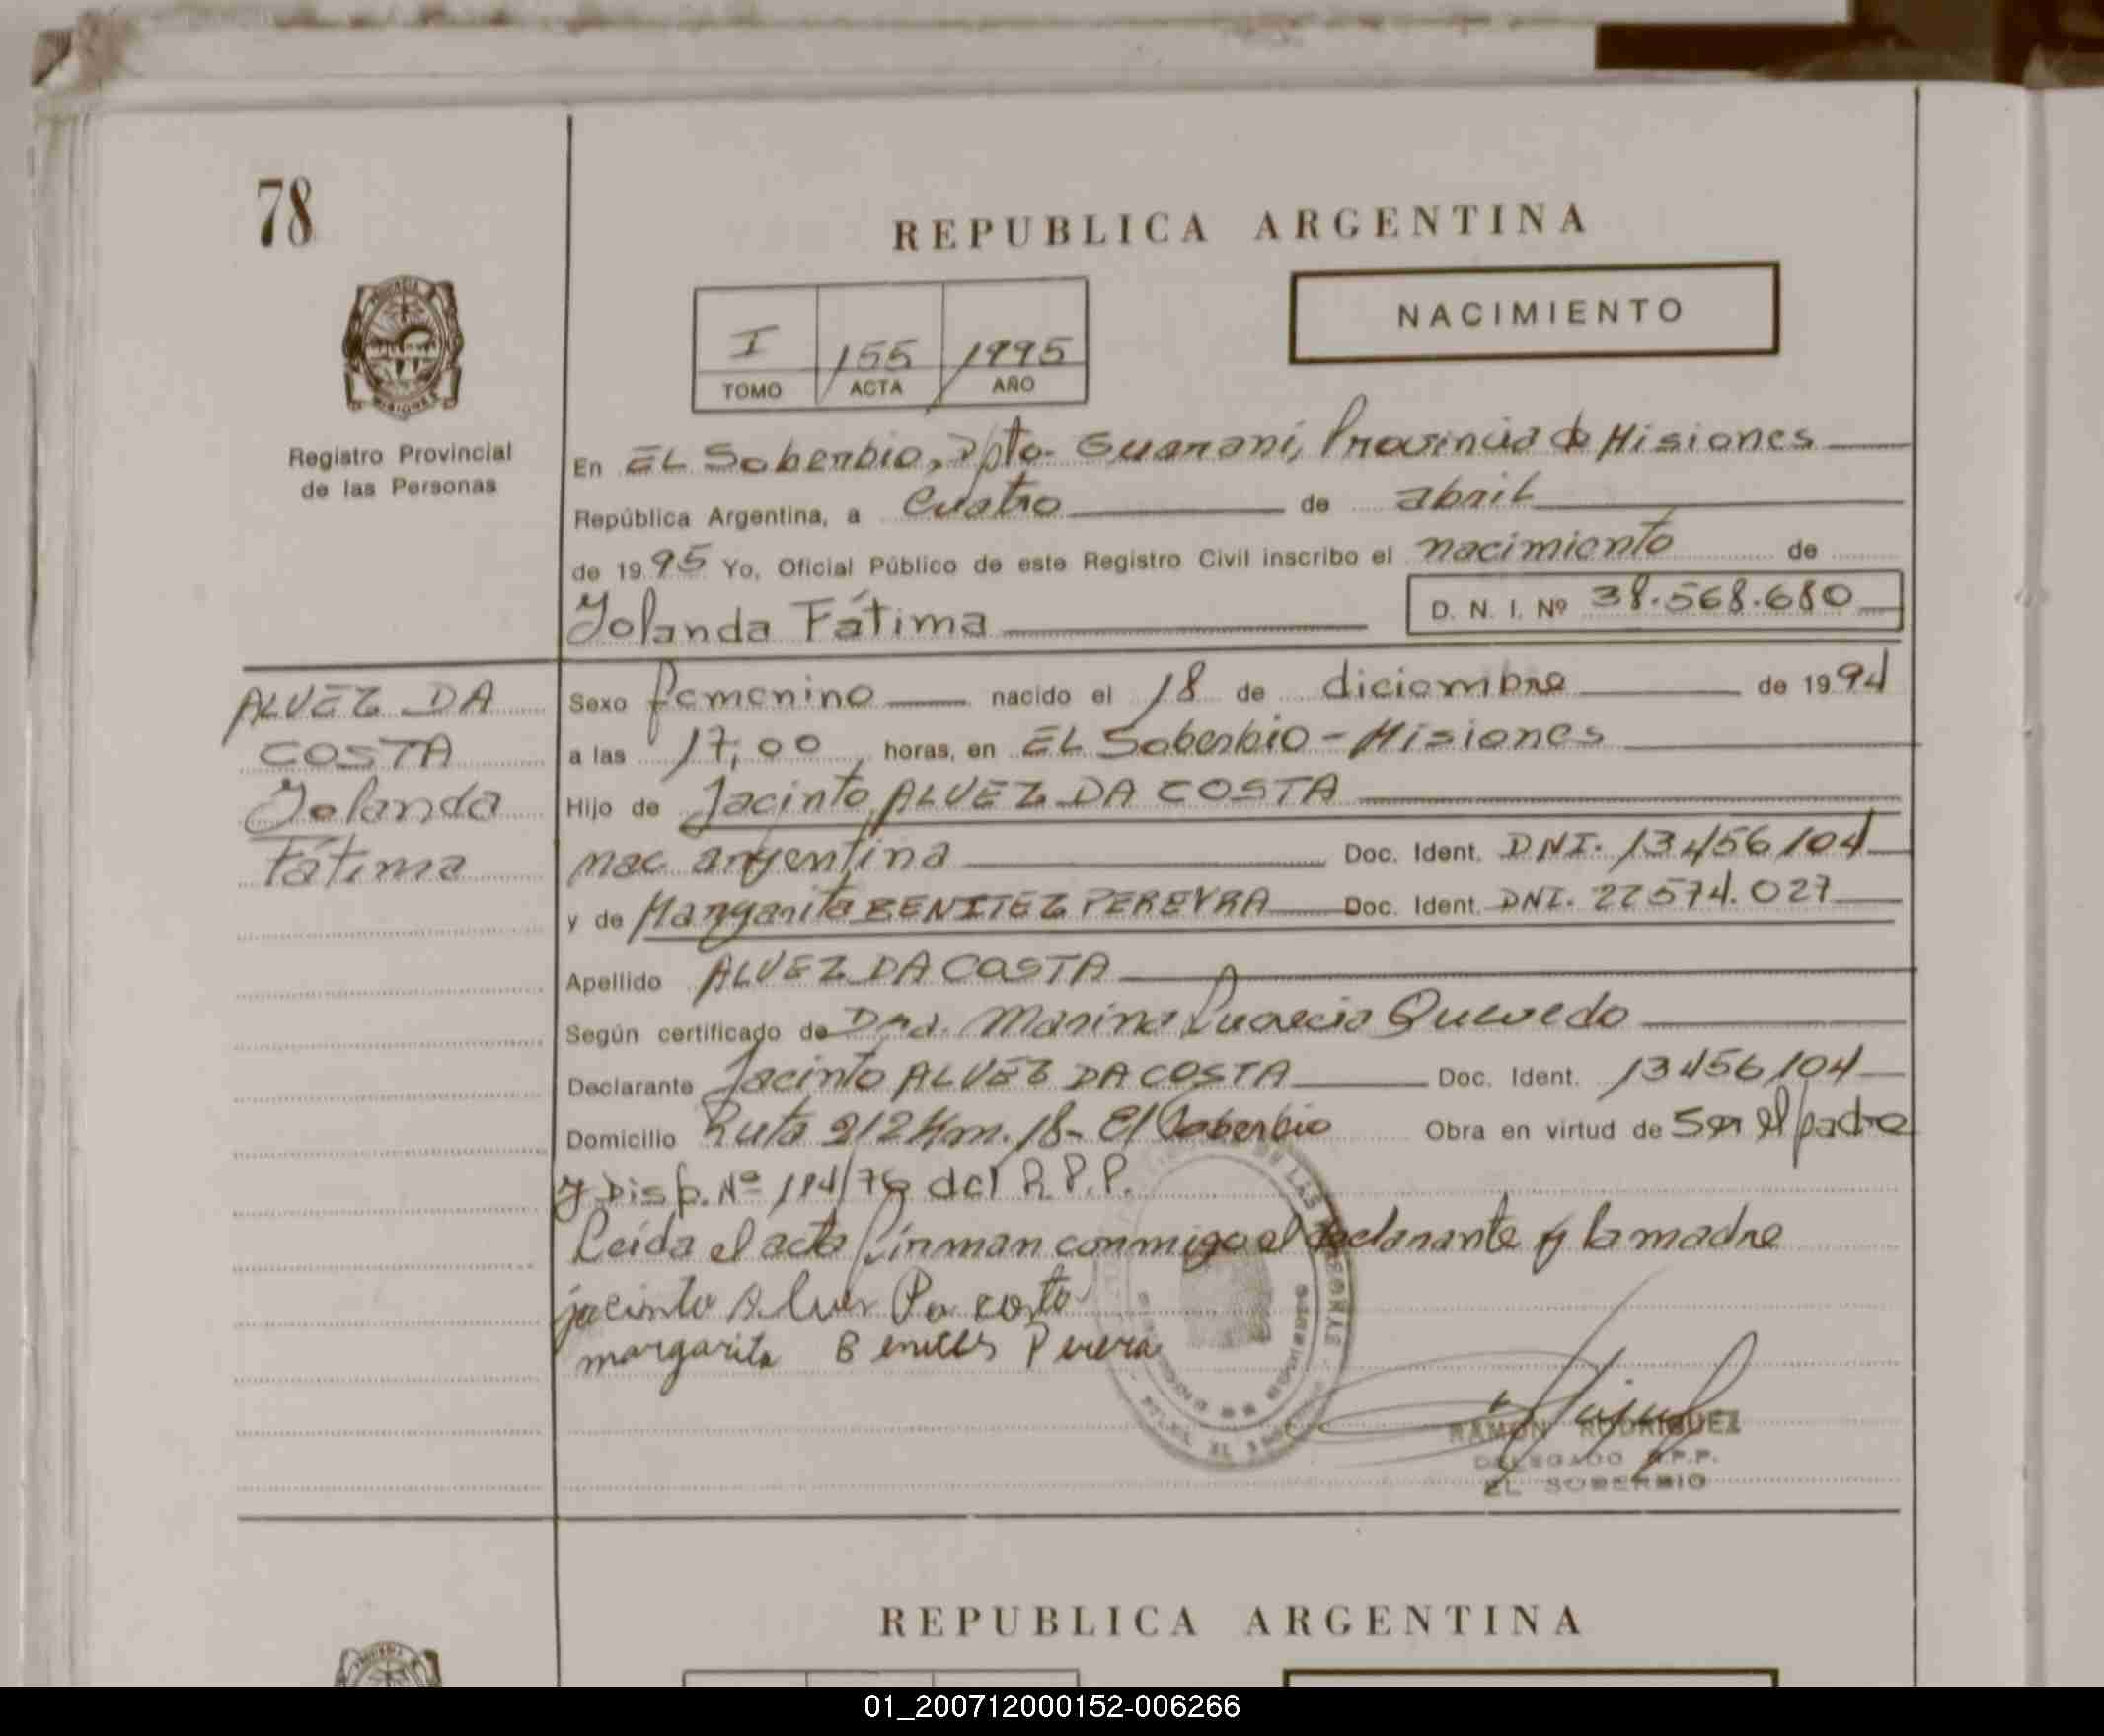 78
REPUBLICA ARGENTINA
NACIMIENTO
I 155 1995
TOMO ACTA AÑO
Registro Provincial
de las Personas
En EL Soberbio, Dpto. Guaraní, Provincia de Misiones
República Argentina, a cuatro de abril
de 1995 Yo, Oficial Público de este Registro Civil inscribo el nacimiento de
Yolanda Fátima D. N. I. Nº 38.568.680
ALVEZ DA
COSTA
Yolanda
Fátima
Sexo femenino nacido el 18 de diciembre de 1994
a las 17,00 horas, en EL Soberbio - Misiones
Hijo de Jacinto ALVEZ DA COSTA
nac. argentina Doc. Ident. DNI. 13456104
y de Margarita BENITEZ PEREYRA Doc. Ident. DNI. 22574.027
Apellido ALVEZ DA COSTA
Según certificado de Dra. Marina Quevedo
Declarante Jacinto ALVEZ DA COSTA Doc. Ident. 13456104
Domicilio Ruta 212 Km. 18- El Soberbio Obra en virtud de ser el padre
y Disp. Nº 114/76 del R.P.P.
Leída el acta firman conmigo el declarante y la madre
jacinto Alves Da costa
margarita Benites Perera
RAMON RODRIGUEZ
DELEGADO R.P.P.
EL SOBERBIO
REPUBLICA ARGENTINA
01_200712000152-006266